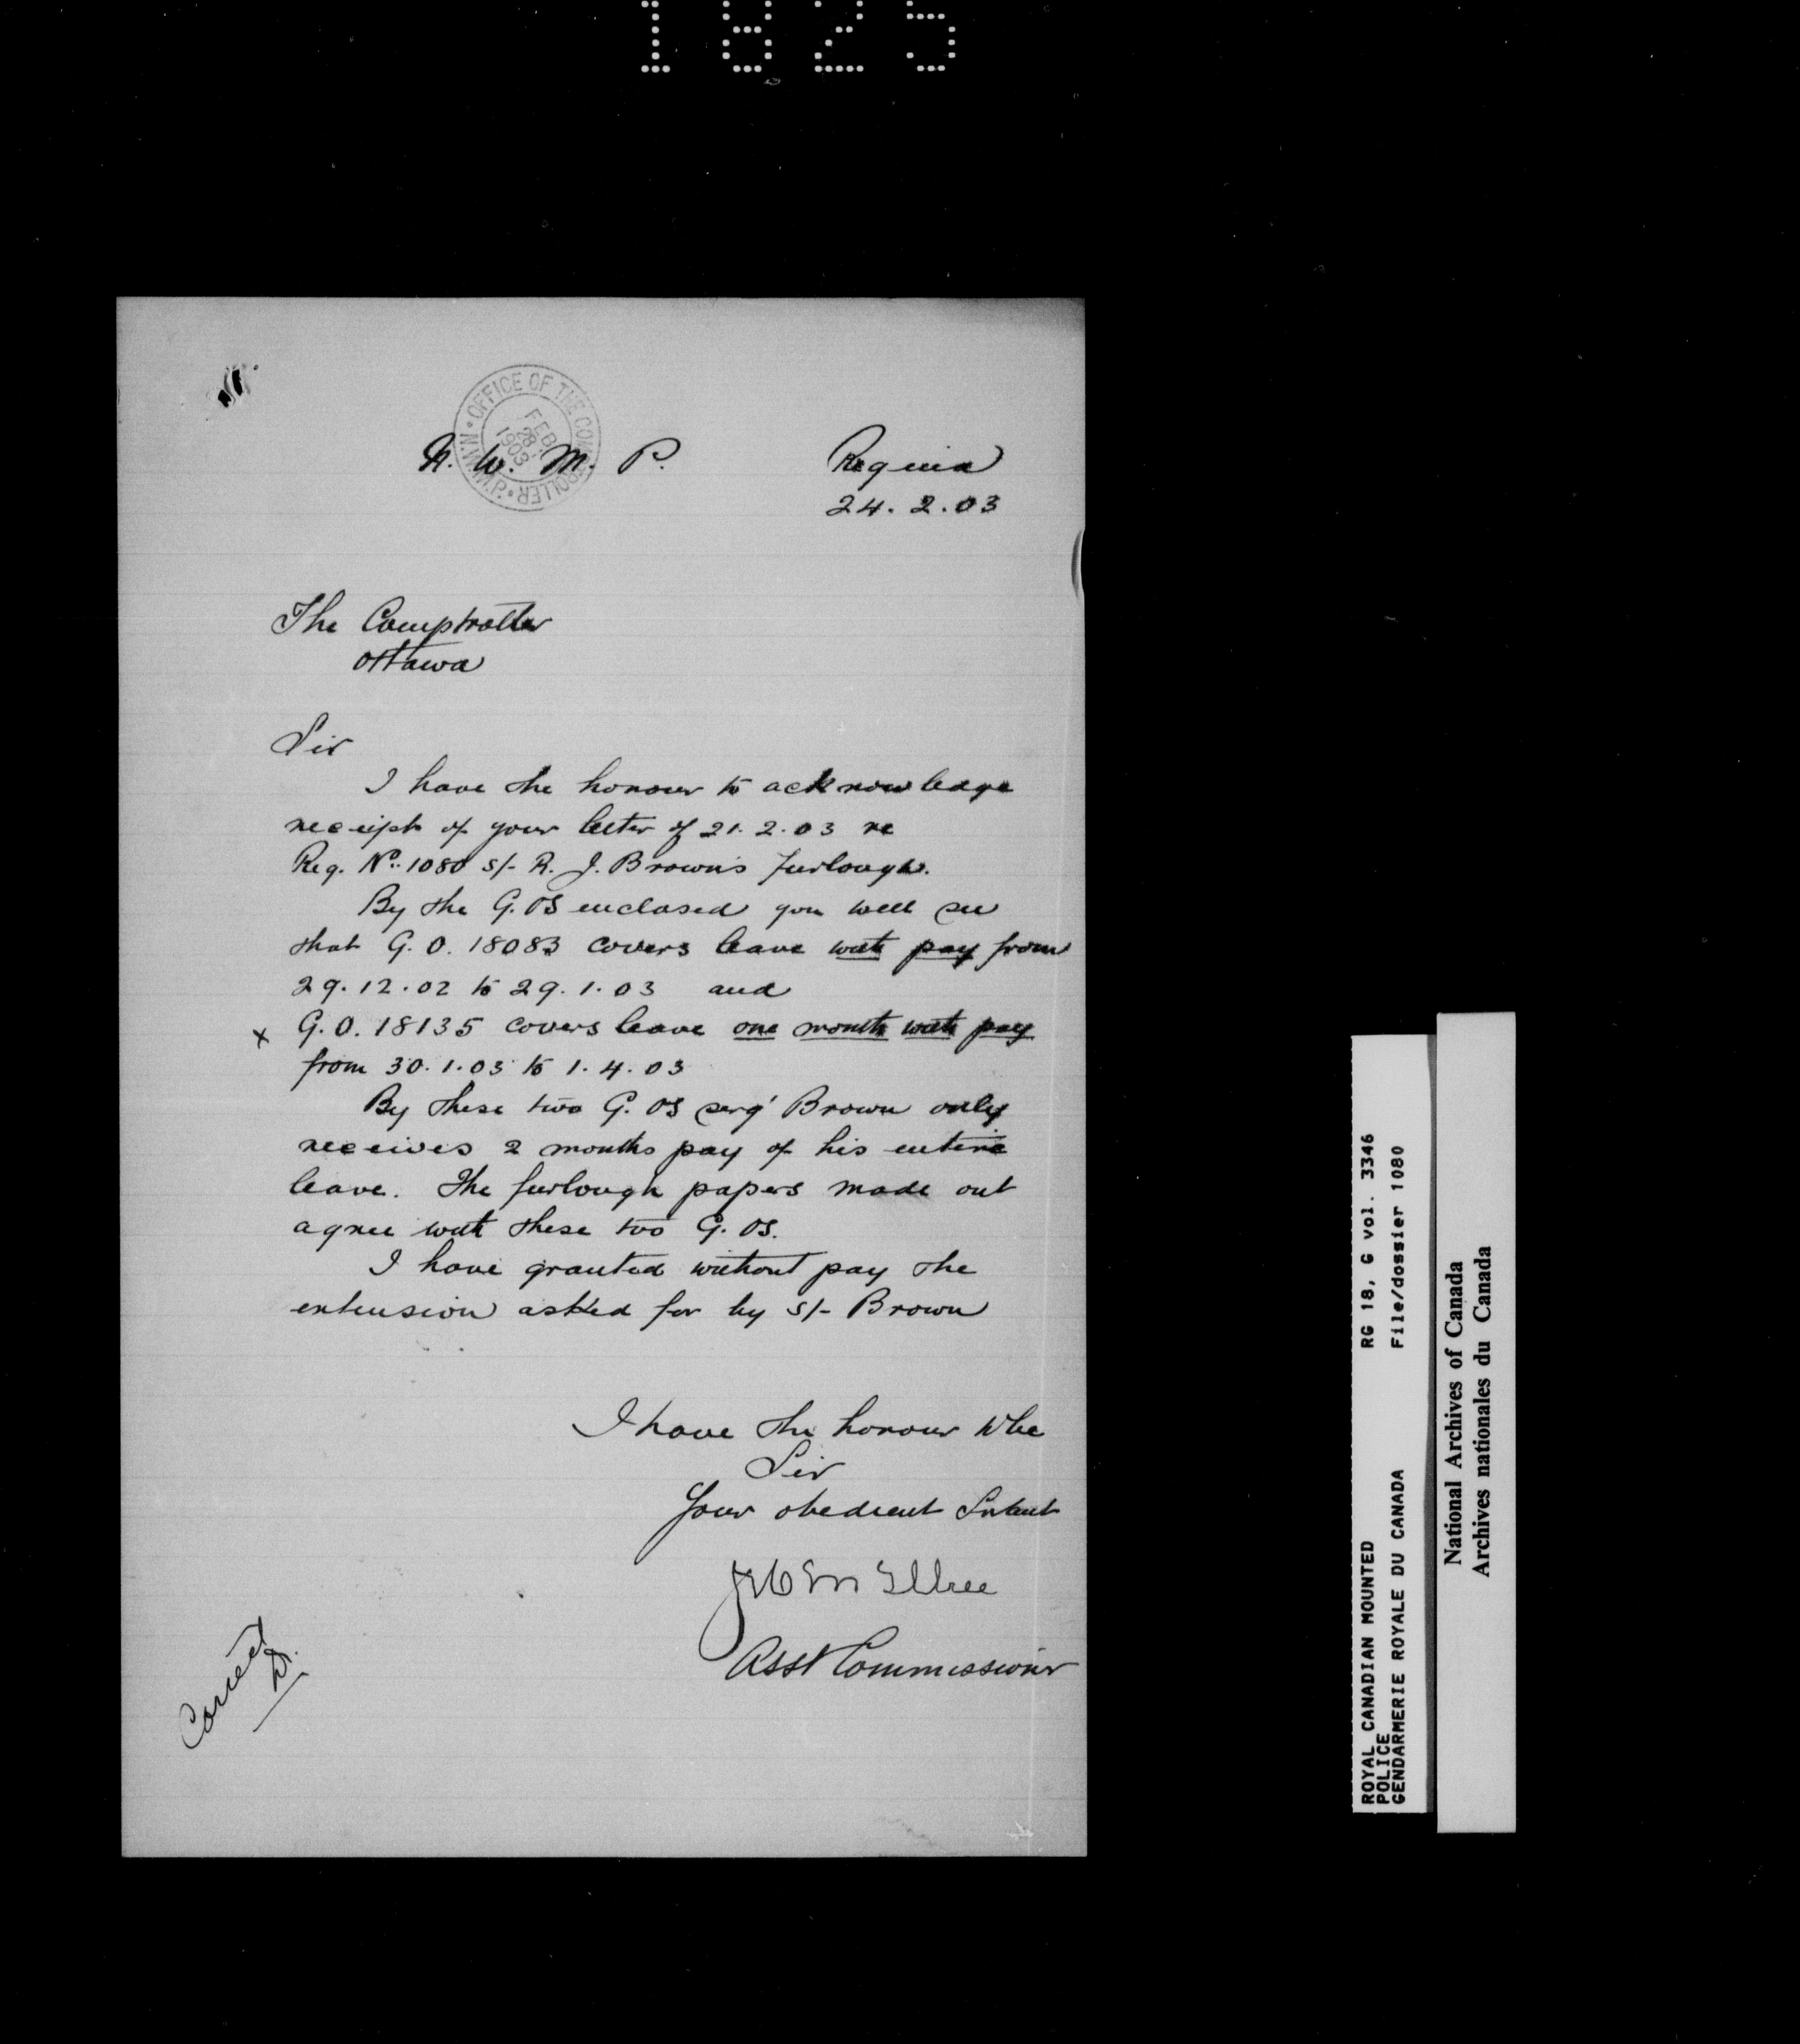 1825
OFFICE OF THE COMPTROLLER • N.W.M.P. •
FEB 28 1903
N. W. M. P.
Regina
24. 2. 03
The Comptroller
Ottawa
Sir
I have the honour to acknowledge
receipt of your letter of 21. 2. 03 re
Reg. No. 1080 s/- R. J. Brown's furlough.
By the G. Os enclosed you will see
that G. O. 18083 covers leave with pay from
29. 12. 02 to 29. 1. 03 and
x G. O. 18135 covers leave one month with pay
from 30. 1. 03 to 1. 4. 03
By these two G. Os serg' Brown only
receives 2 months pay of his entire
leave. The furlough papers made out
agree with these two G. Os.
I have granted without pay the
extension asked for by s/- Brown
I have the honour to be
Sir
Your obedient Servant
Asst Commissioner
ROYAL CANADIAN MOUNTED
POLICE
GENDARMERIE ROYALE DU CANADA
RG 18, G vol. 3346
File/dossier 1080
National Archives of Canada
Archives nationales du Canada